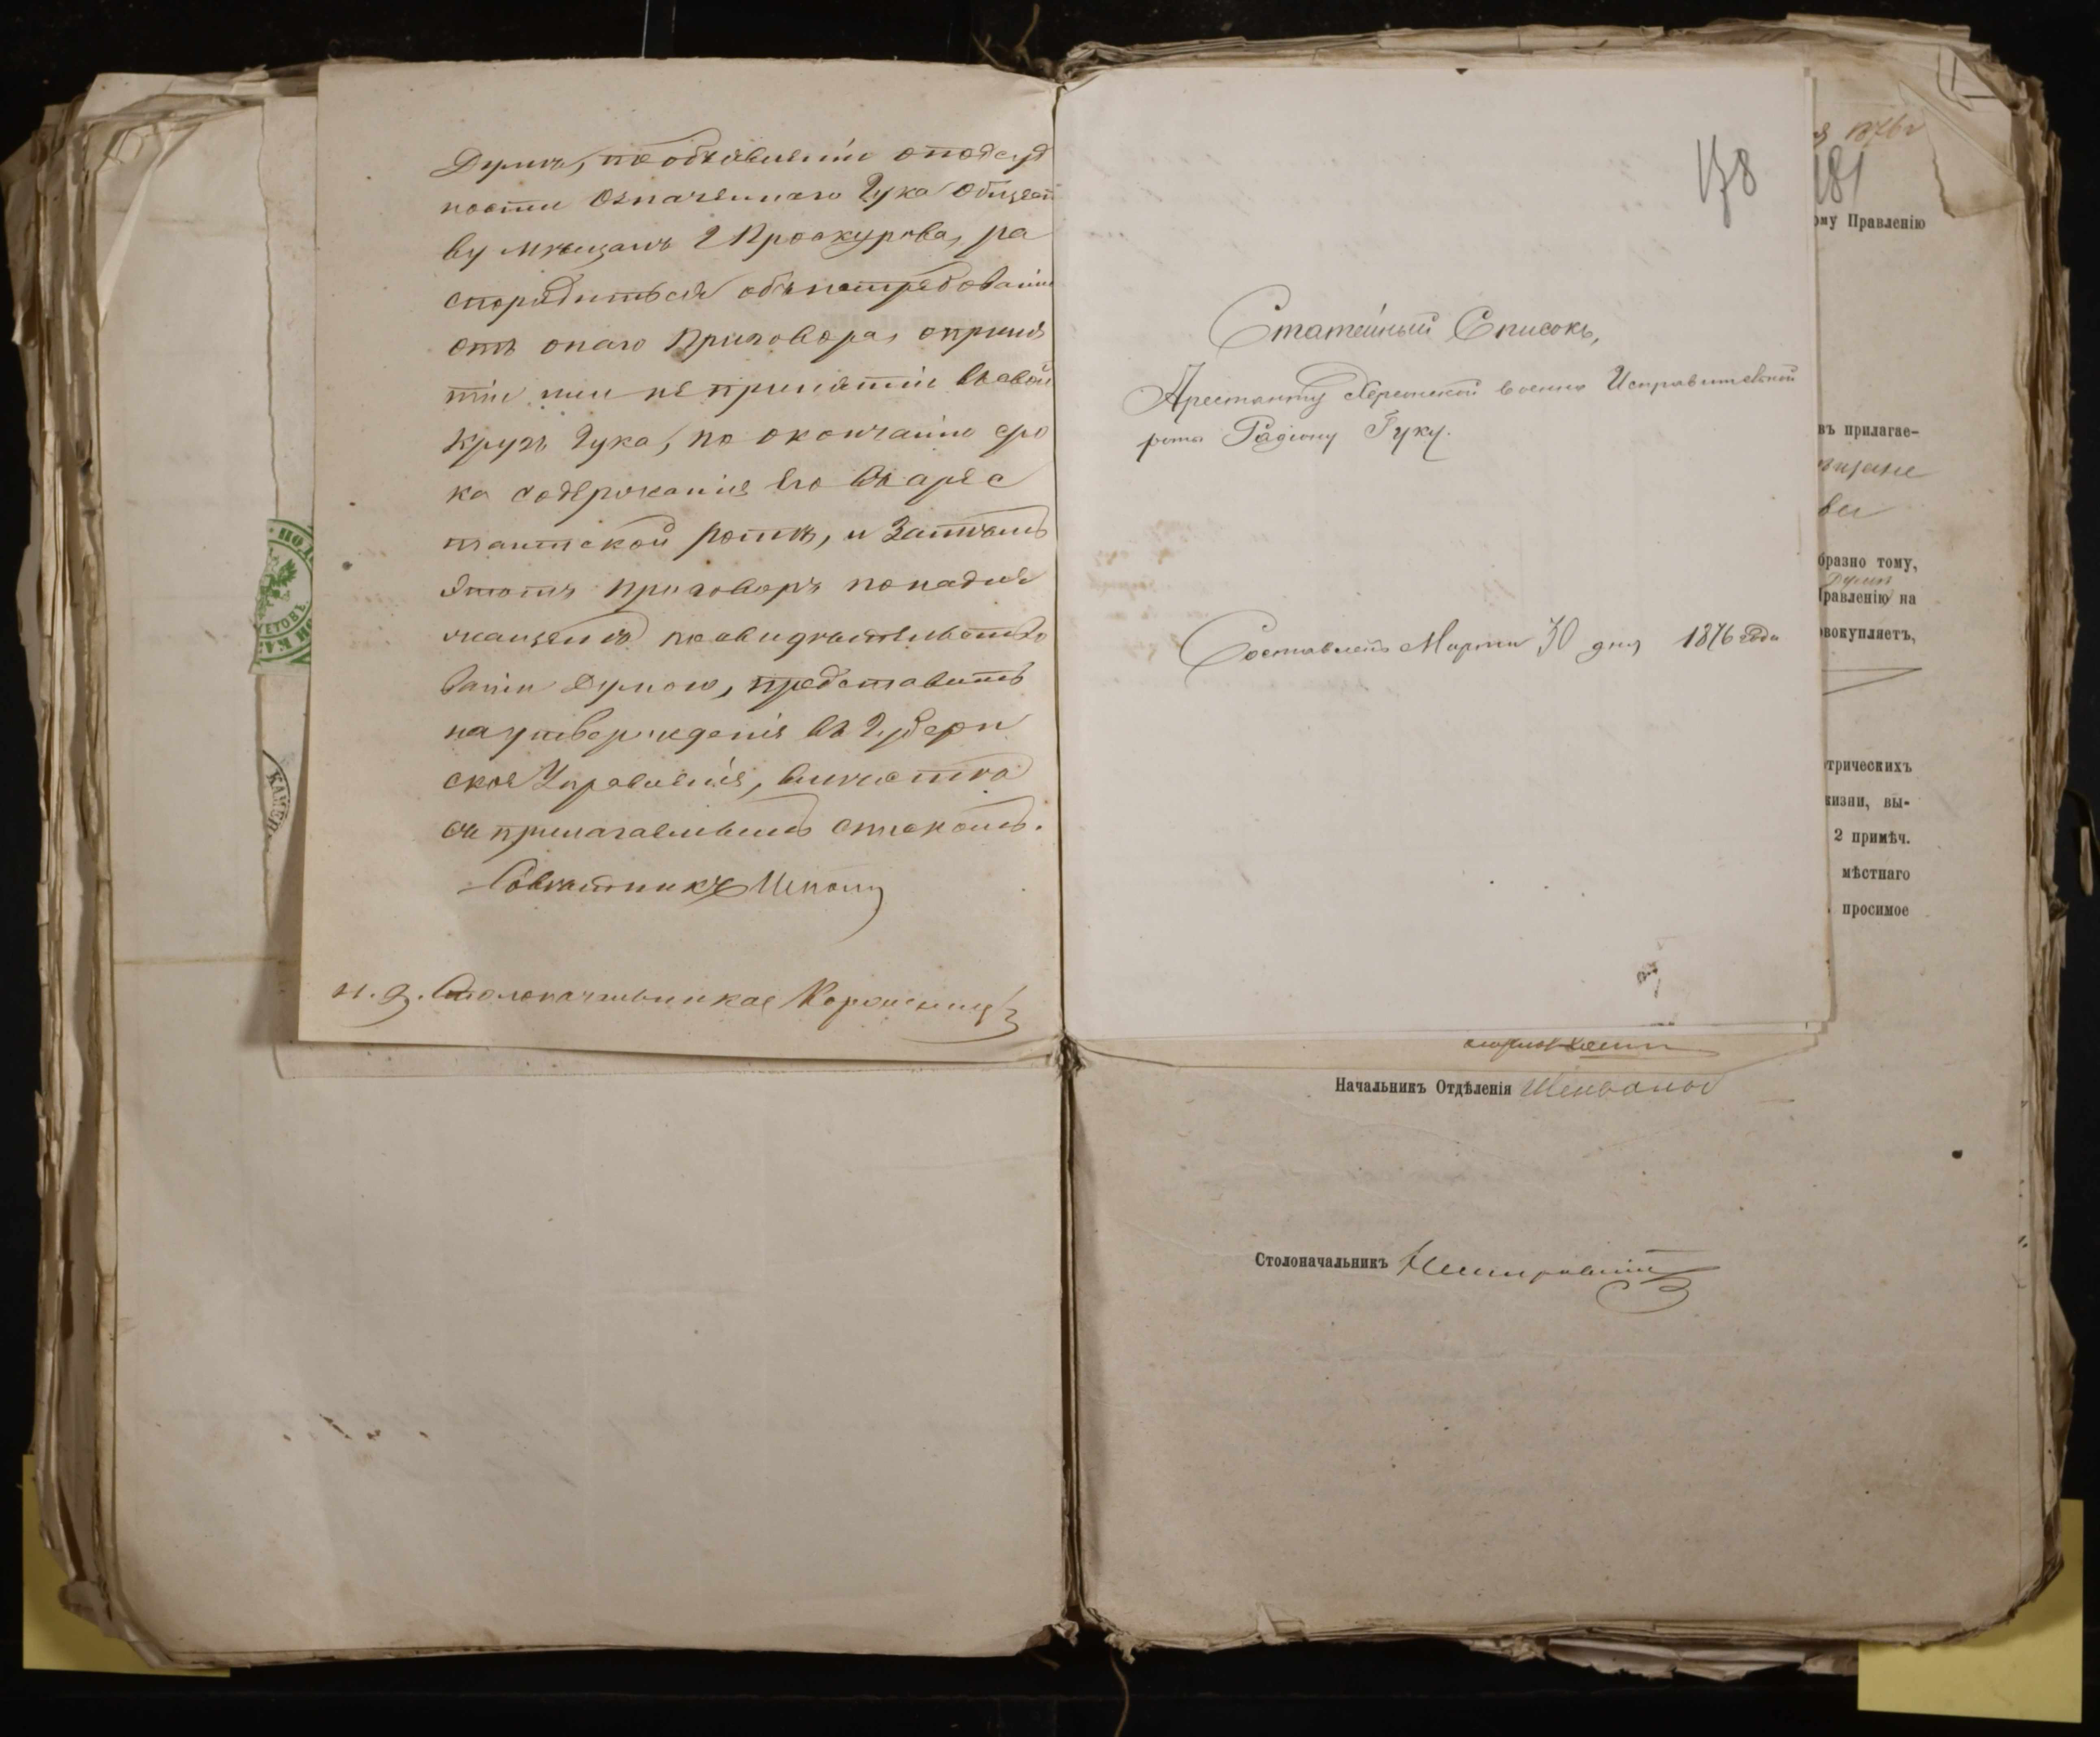 Думѣ, по объявленіи о подсуд
ности означеннаго Гука Общест
ву мѣщанъ г Проскурова, ра
спорядиться объ истребованіи
отъ онаго приговора, о приня
тіи или не принятіи въ свой
кругъ Гука, по окончаніи сро
ка содержанія его въ арес
тантской ротѣ, и затѣмъ
этотъ приговоръ по надле
жащемъ по свидѣтельство
ваніи Думою, представить
на утвержденіе въ Губерн
ское Управленіе, вмѣстѣ
съ прилагаемымъ спискомъ.
Совѣтникъ
и. д. Столоначальника
178
Статейный Списокъ,
Арестанту Херсонской военно Исправительной
роты Радіону Гуку.
Составленъ Марта 30 дня 1876 года
1876 г
181
ому Правленію
въ прилагае-
бразно тому,
Думѣ
Правленію на
овокупляетъ,
трическихъ
жизни, вы-
2 примѣч.
мѣстнаго
просимое
Начальникъ Отдѣленія
Столоначальникъ
КАМЕН